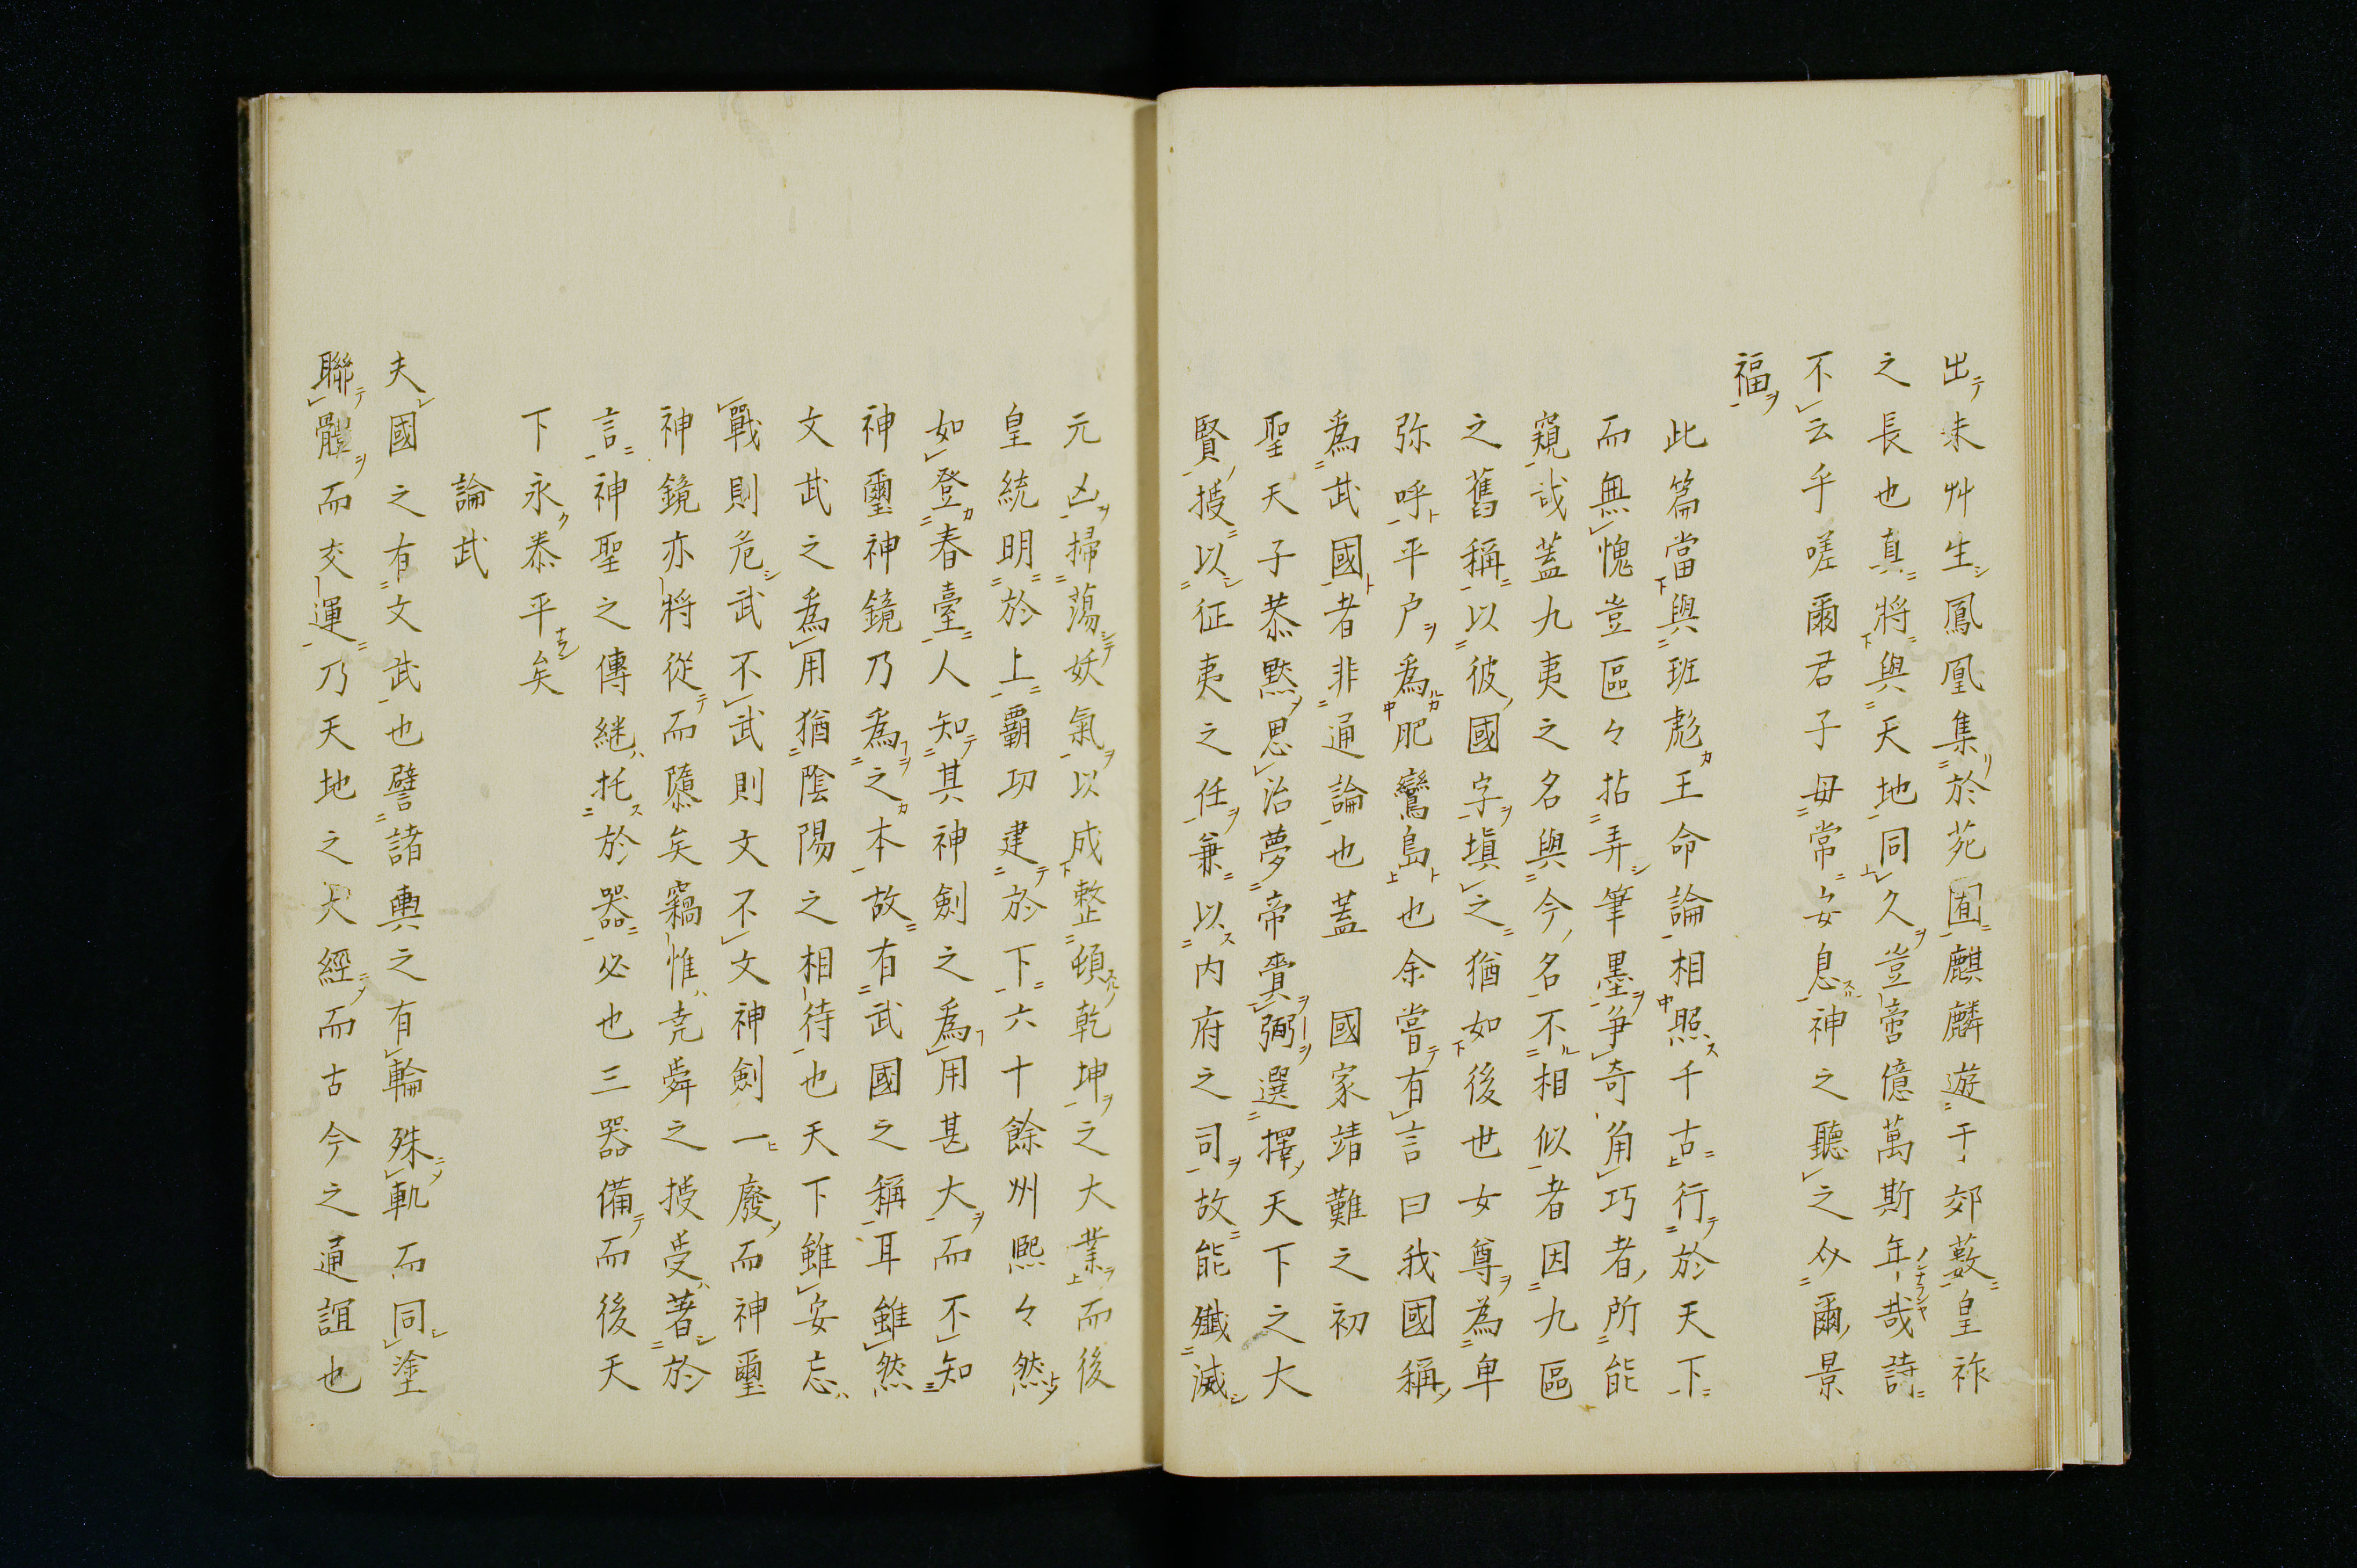 出朱艸生鳳凰集於苑囿麒麟遊于郊藪皇祚
之長也真將與天地同久豈啻億萬斯年哉詩
不云乎嗟爾君子毋常安息神之聽之介爾景
福
此篇當與班彪王命論相照千古行於天下
而無愧豈區々拈弄筆墨爭奇角巧者所能
窺哉蓋九夷之名與今名不相似者因九區
之舊稱以彼國字塡之猶如後世女尊為卑
弥呼平户為肥鸞島也余嘗有言曰我國稱
為武國者非通論也蓋　國家靖難之初
聖天子恭黙思治夢帝賚弼選擇天下之大
賢授以征夷之任兼以内府之司故能殱滅
元凶掃蕩妖氣以成整頓乾坤之大業而後
皇統明於上覇功建於下六十餘州熙々然
如登春臺人知其神劍之為用甚大而不知
神璽神鏡乃為之本故有武國之稱耳雖然
文武之為用猶陰陽之相待也天下雖安忘
戰則危武不武則文不文神劍一廢而神璽
神鏡亦將從而隳矣竊惟堯舜之授受著於
言神聖之傳継托於器必也三器備而後天
下永泰平矣
論武
夫國之有文武也譬諸輿之有輪殊軌而同塗
聯體而交運乃天地之大經而古今之通誼也